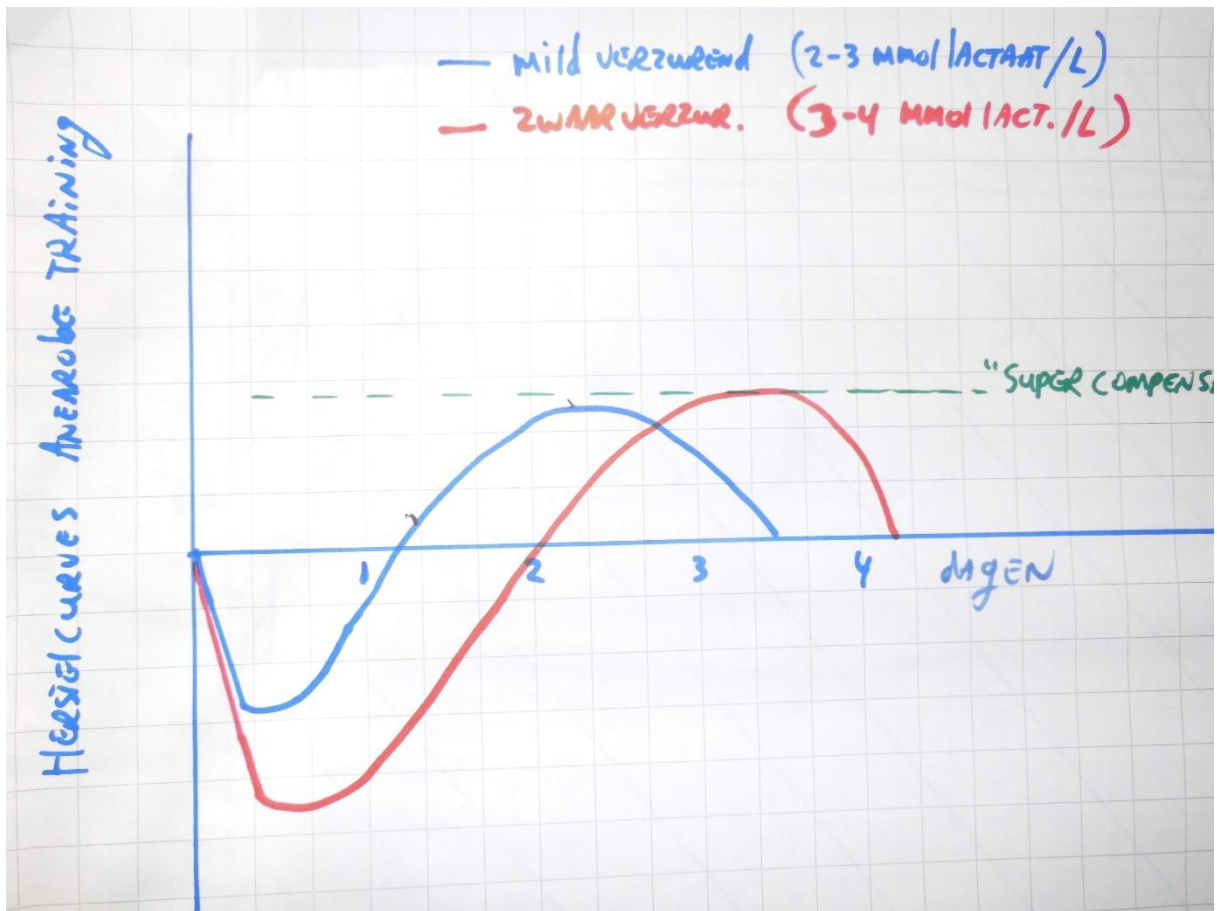 mild VERZUREND (2-3 mmol lACTAAT/L)
ZWAAR VERZUR. (3-4 mmol lACT./L)
HERSTEL CURVES ANEAROBE TRAINING
"SUPER COMPENS
1 2 3 4 dAgEN